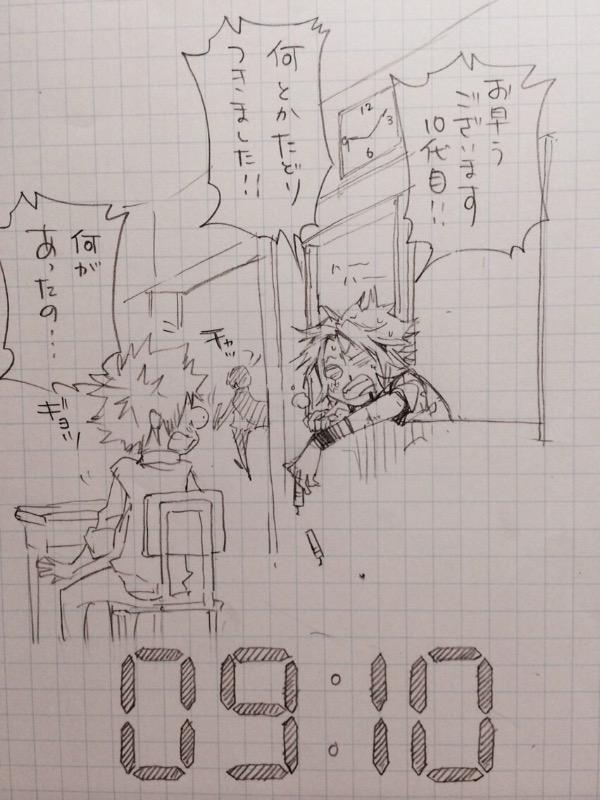 お早う
ございます
10代目!!
12
3
9
6
何とかたどり
つきました!!
何が
あったの!?
チャッ
ギョッ
09:10